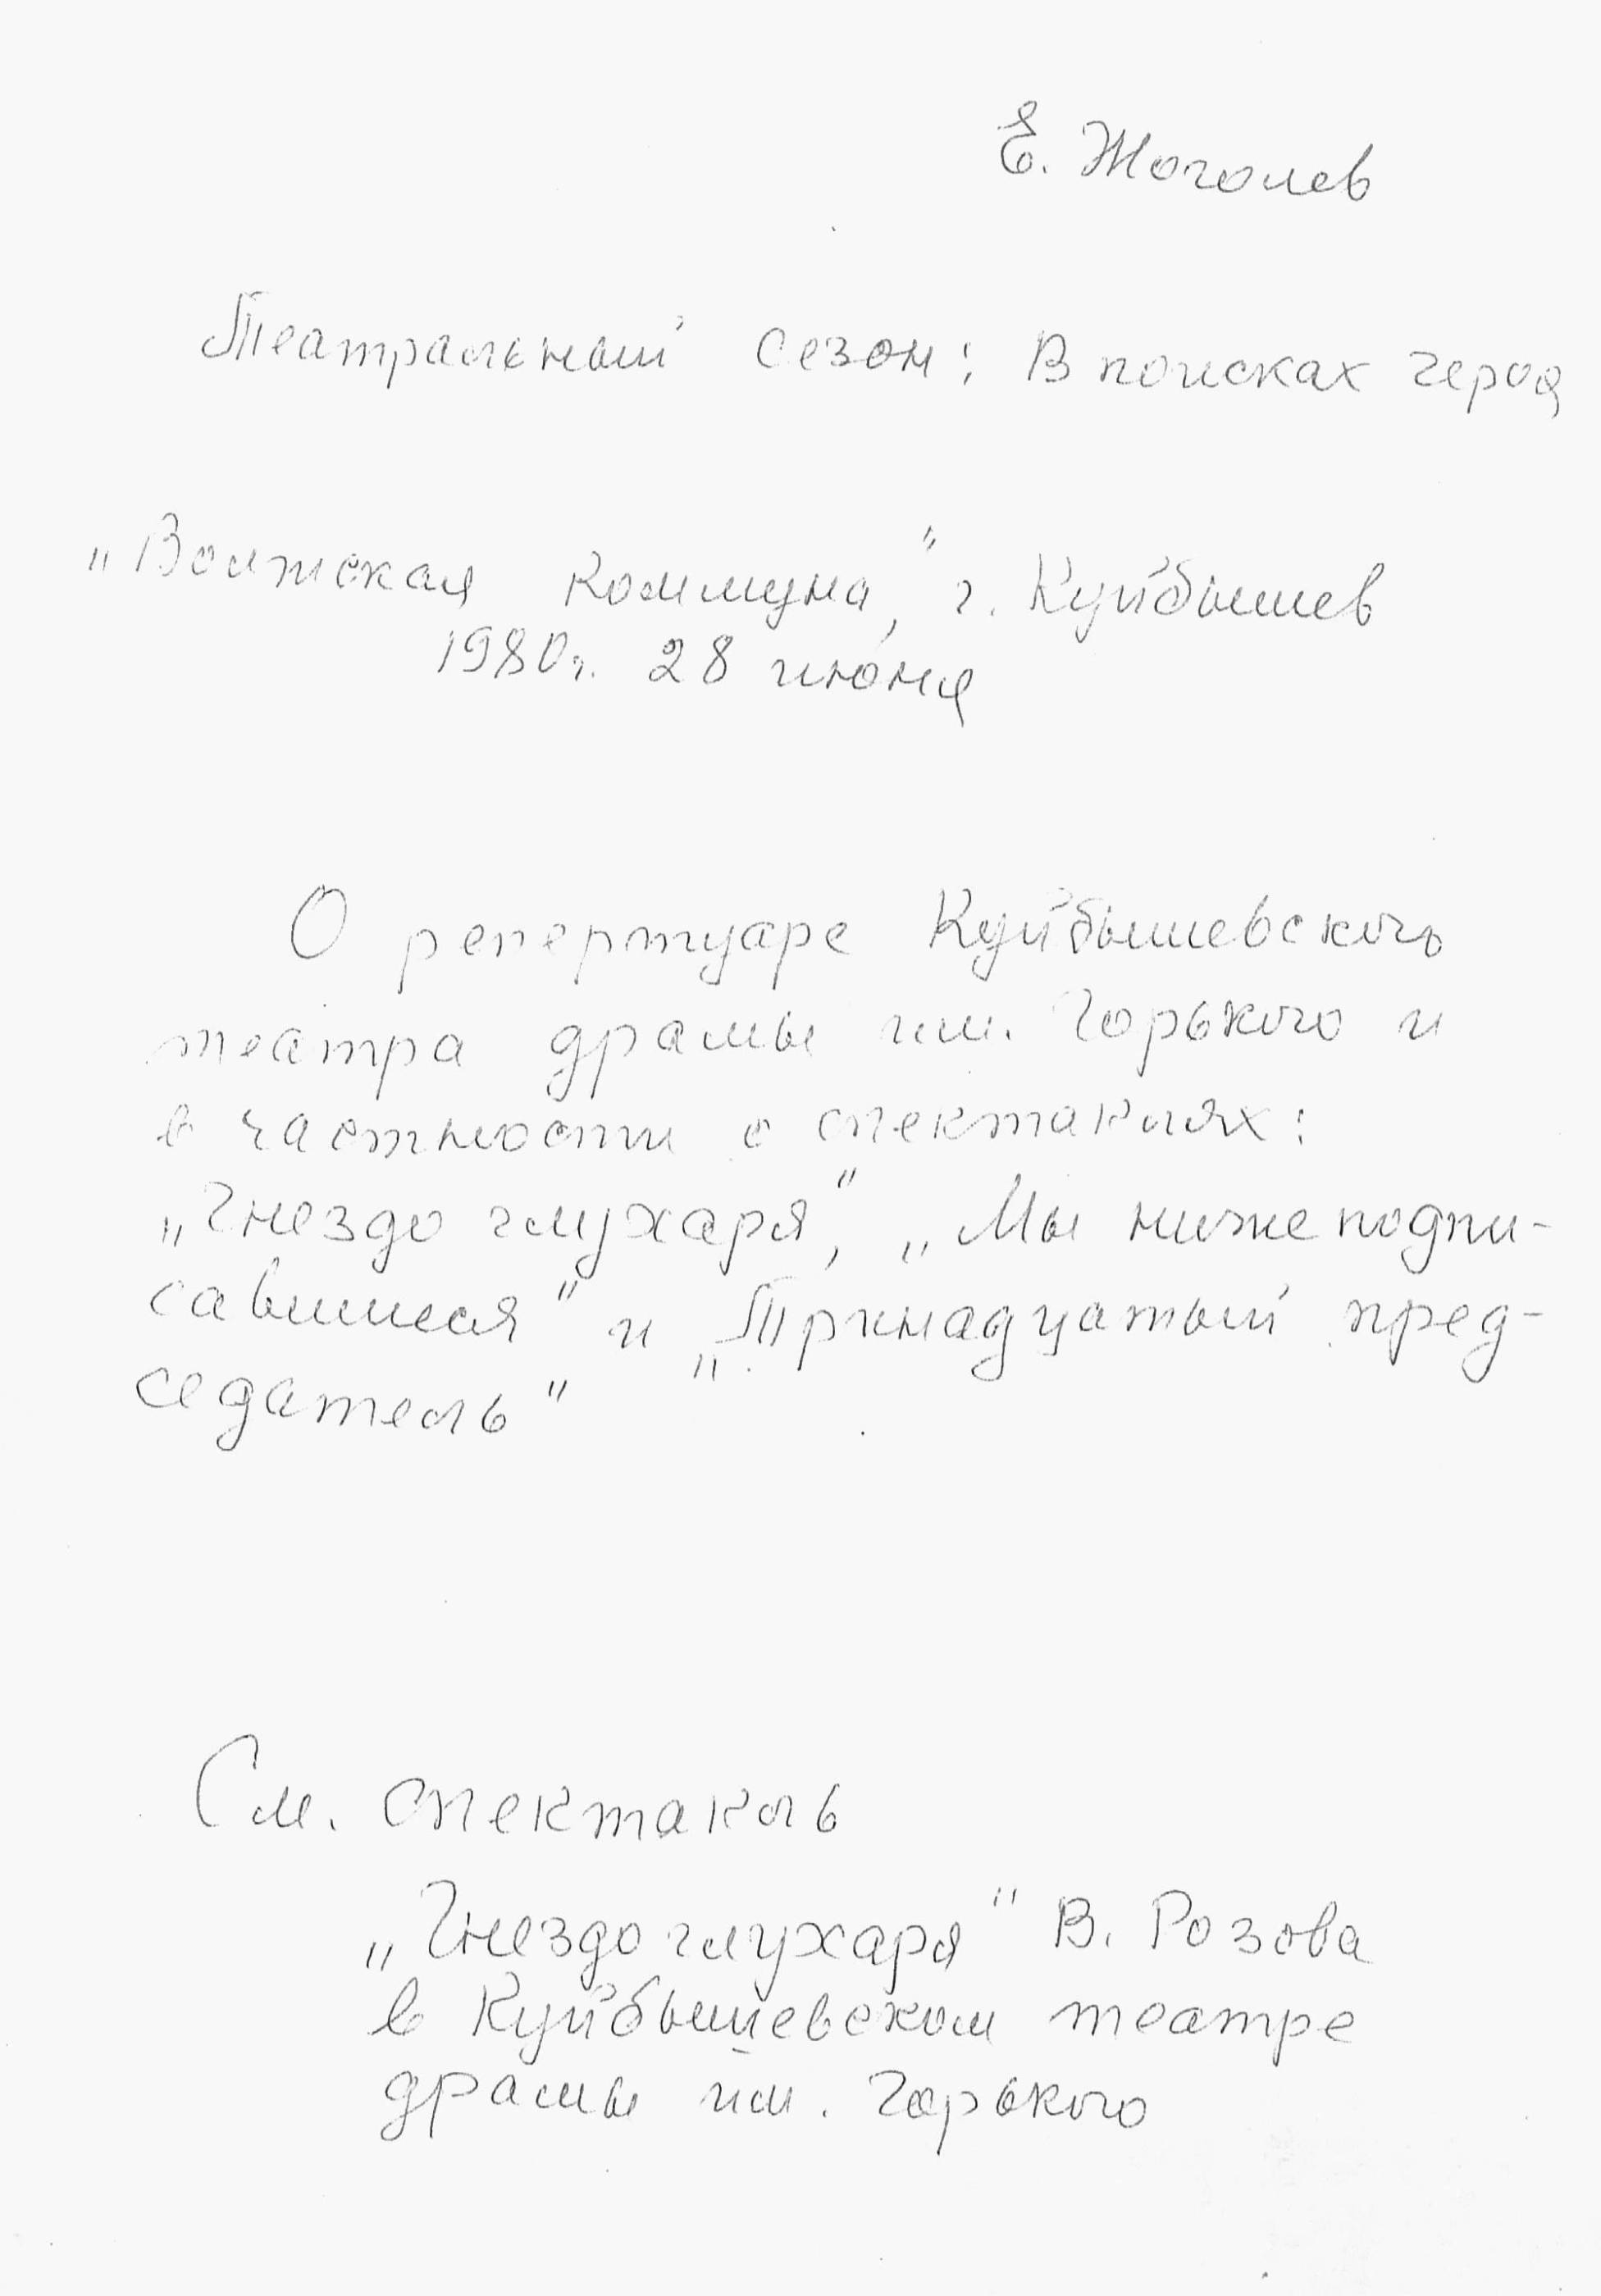 Е. Жоголев
Театральный сезон: В поисках героя
„Волжская коммуна", г. Куйбышев
1980г. 28 июня
О репертуаре Куйбышевского
театра драмы им. Горького и
в частности о спектаклях:
„Гнездо глухаря", „Мы нижеподпи-
савшиеся" и „Тринадцатый пред-
седатель"
См. спектакль
„Гнездо глухаря" В. Розова
в Куйбышевском театре
драмы им. Горького